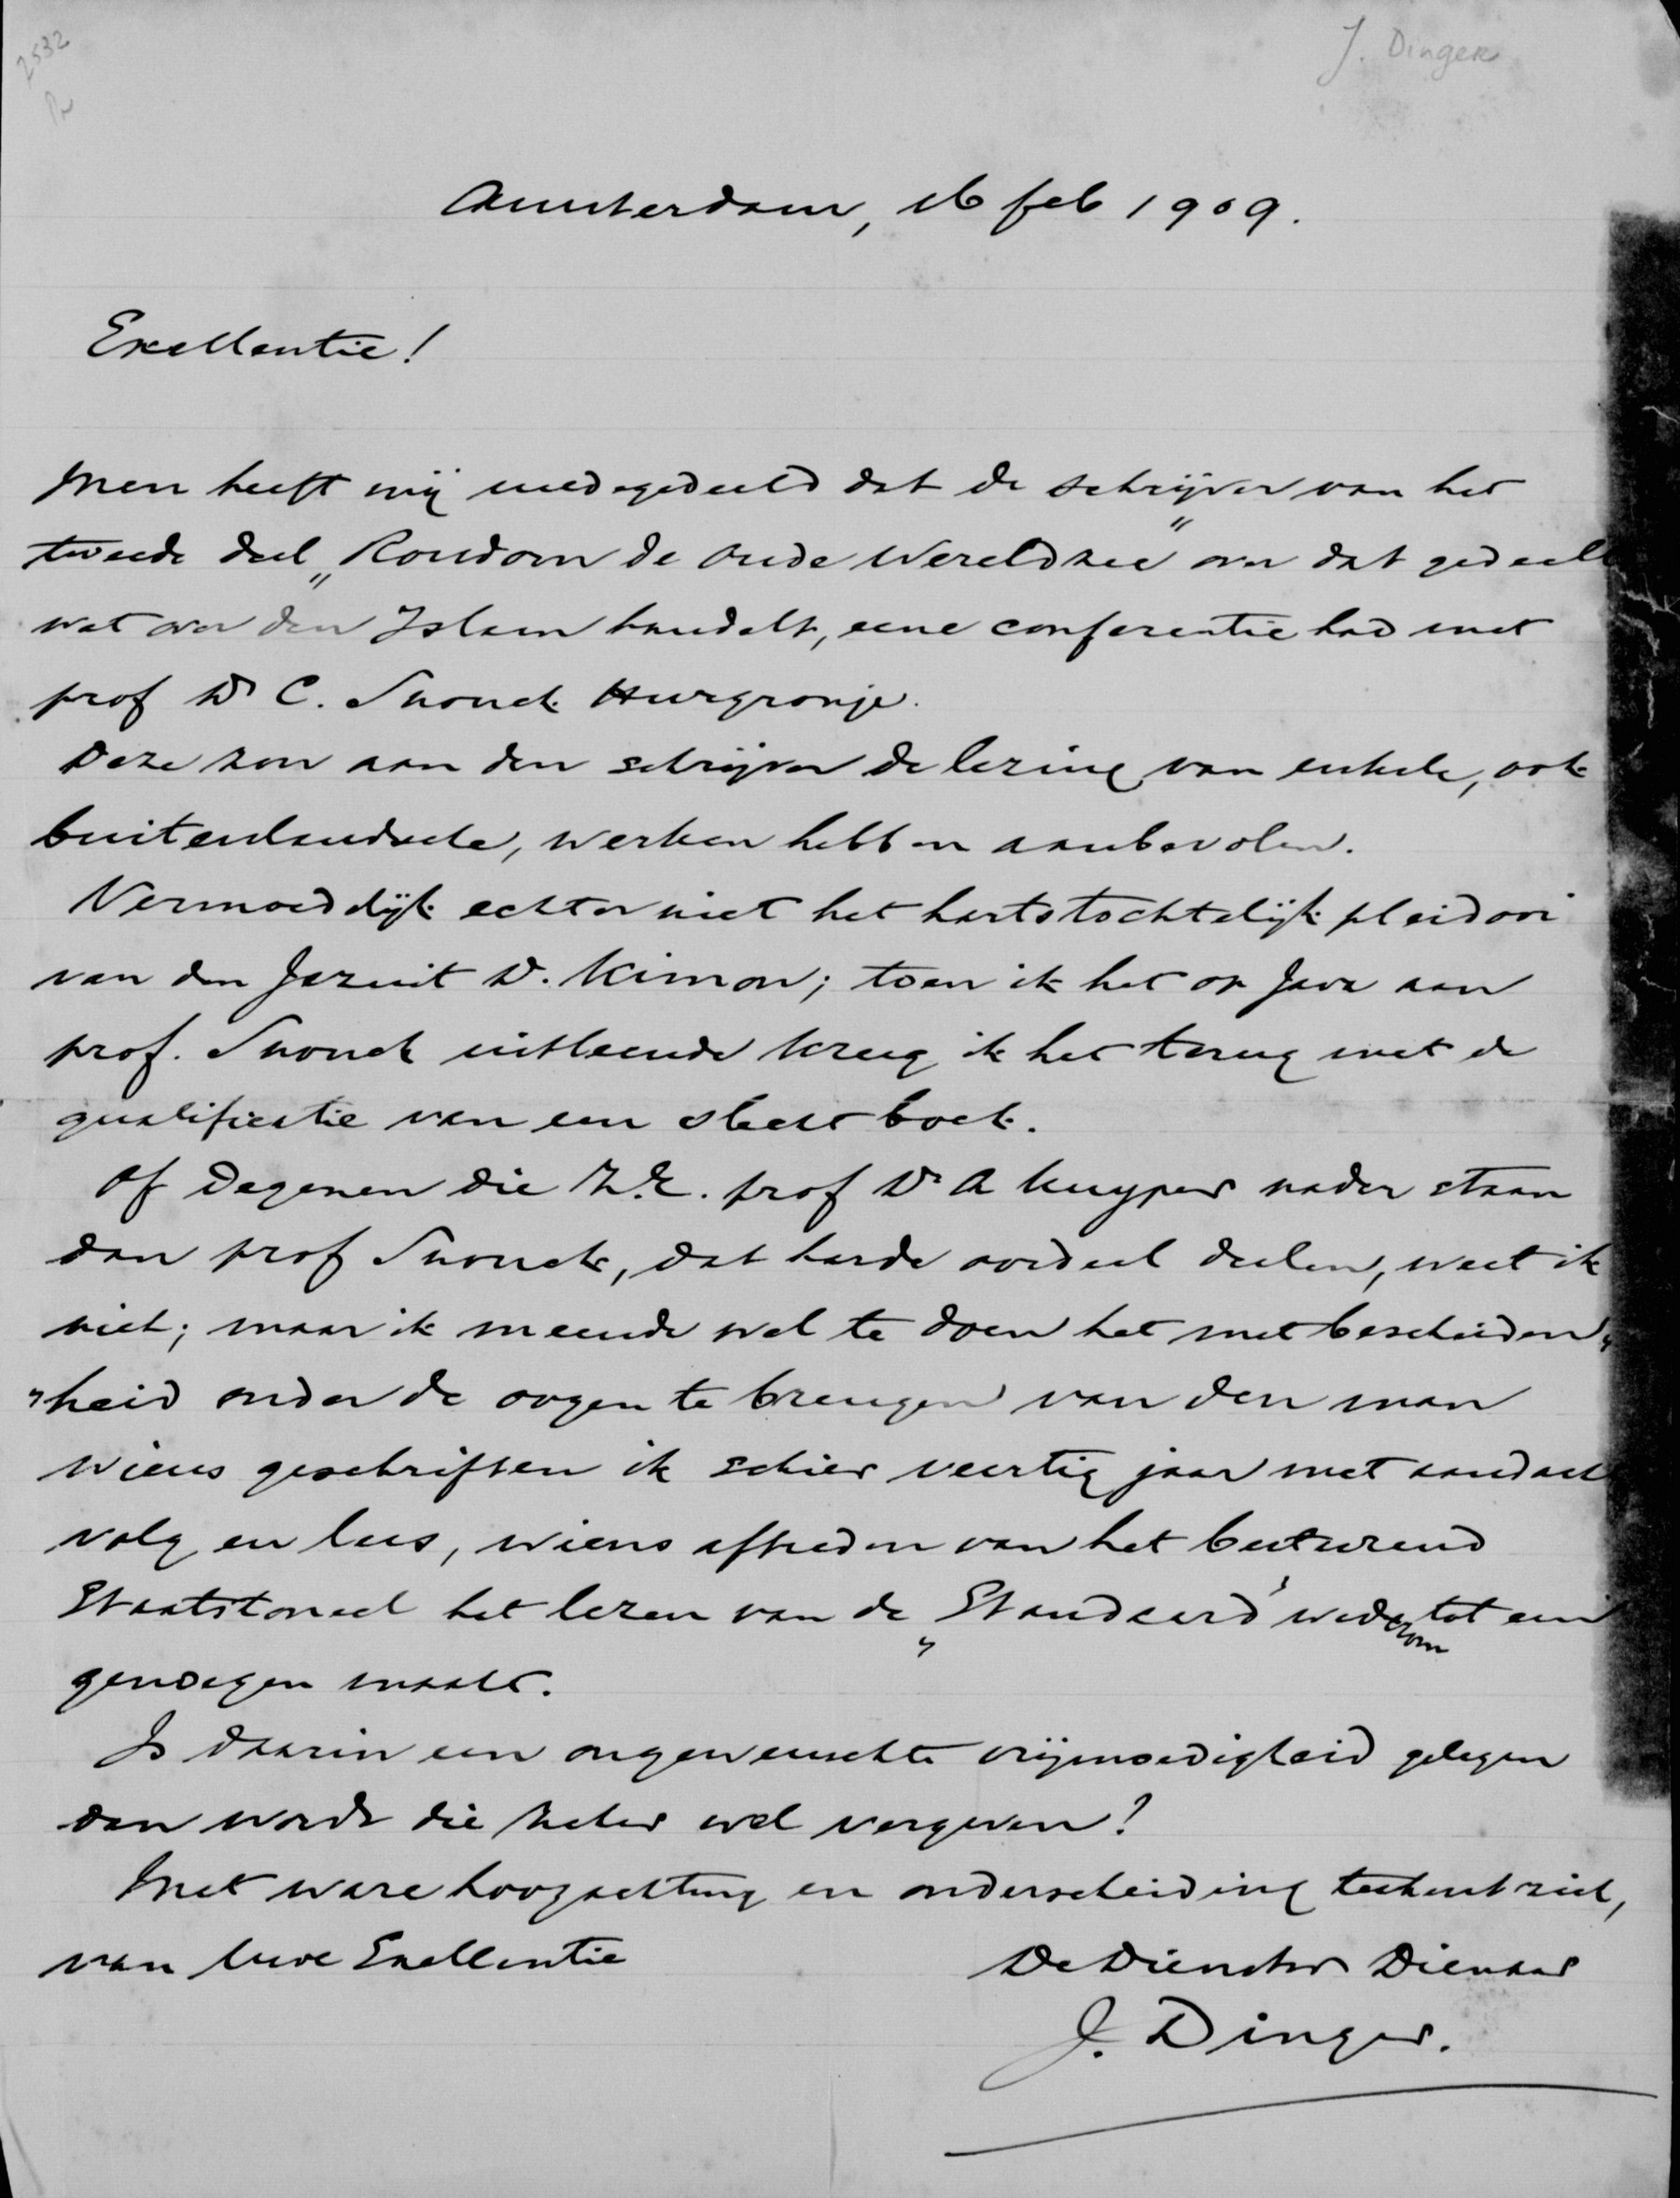 2532
J. Dinger
Amsterdam, 16 feb 1909.
Excellentie!
Men heeft mij medegedeeld dat de schrijver van het
tweede deel „Rondom de Oude Wereldzee" over dat gedeelte
wat over den Islam handelt, eene conferentie had met
prof Dr C. Snouck Hurgronje.
Deze zou aan den schrijver de lezing van enkele, ook
buitenlandsche, werken hebben aanbevolen.
Vermoedelijk echter niet het hartstochtelijk pleidooi
van den Jezuit D. Kimon; toen ik het op Java aan
prof. Snouck uitleende kreeg ik het terug met de
qualificatie van een slecht boek.
Of degenen die Z.E. prof Dr A Kuyper nader staan
dan prof Snouck, dat harde oordeel deelen, weet ik
niet; maar ik meende wel te doen het met bescheiden„
„heid onder de oogen te brengen van den man
wiens geschriften ik schier veertig jaar met aandacht
volg en lees, wiens aftreden van het besturend
Staatstoneel het lezen van de „Standaard" wederom tot een
genoegen maakt.
Is daarin een ongewenschte vrijmoedigheid gelegen
dan wordt die zeker wel vergeven?
Met ware hoogachting en onderscheiding teekent zich,
van Uwe Exellentie
De Dienstw Dienaar
J. Dinger.